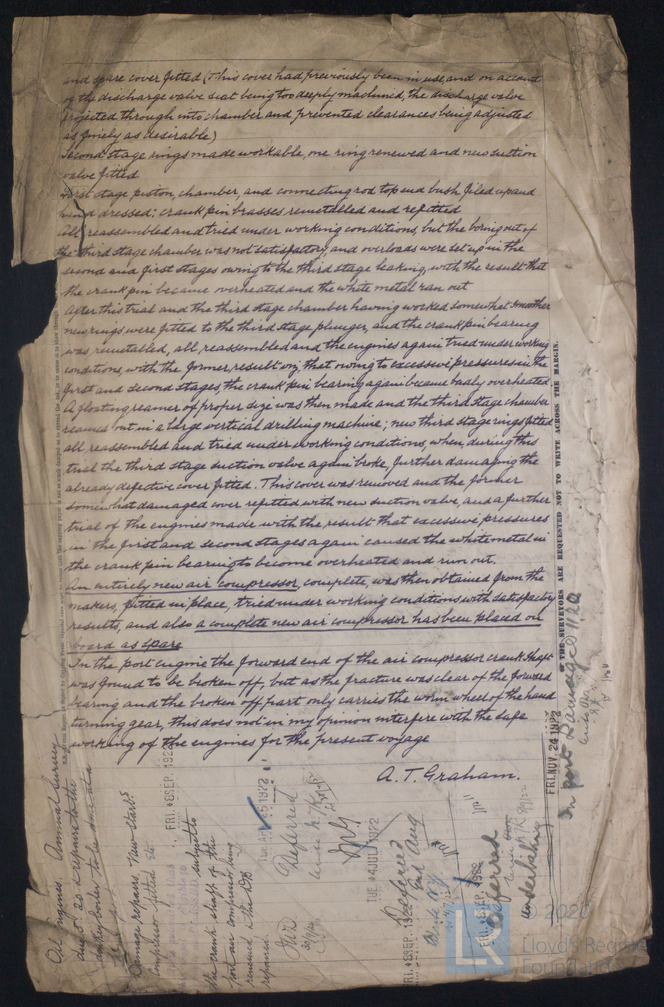 and spare cover fitted (This cover had previously been in use, and on account
of the discharge valve seat being too deeply machined, the discharge valve
projected through into chamber and prevented clearances being adjusted
as finely as desirable)
Second stage rings made workable, one ring renewed and new suction
valve fitted
First stage piston, chamber, and connecting rod top end bush, filed up and
dressed; crank pin brasses remetalled and refitted
All reassembled and tried under working conditions, but the boring out of
the third stage chamber was not satisfactory, and overloads were set up in the
second and first stages owing to the third stage leaking, with the result that
the crank pin became overheated and the white metal ran out
After this trial and the third stage chamber having worked somewhat smoother
new rings were fitted to the third stage plunger, and the crank pin bearing
was remetalled, all reassembled and the engines again tried under working
conditions, with the former result viz, that owing to excessive pressures in the
first and second stages, the crank pin bearing again became badly overheated
A floating reamer of proper size was then made and the third stage chamber
reamed out in a large vertical drilling machine; new third stage rings fitted
all reassembled and tried under working conditions, when, during this
trial the third stage suction valve again broke, further damaging the
already defective cover fitted. This cover was removed and the former
somewhat damaged cover refitted with new suction valve, and a further
trial of the engines made with the result that excessive pressures
in the first and second stages again caused the white metal in
the crank pin bearings to become overheated and run out.
An entirely new air compressor, complete, was then obtained from the
makers, fitted in place, tried under working conditions with satisfactory
results, and also a complete new air compressor has been placed on
board as spare
In the port engine the forward end of the air compressor crank shaft
was found to be broken off, but as the fracture was clear of the forward
bearing and the broken off part only carries the worm wheel of the hand
turning gear, this does not in my opinion interfere with the safe
working of the engines for the present voyage
A. T. Graham.
THE SURVEYORS ARE REQUESTED NOT TO WRITE ACROSS THE MARGIN.
FRI. NOV. 24 1922
Oil Engines. Annual Survey
due & 20 repairs to the
donkey boiler, to be
Damage repairs, New Starb.
Compressor fitted
subject to
the crank shaft of the
port air compressor being
renewed
repaired
FRI. 8 SEP. 1922
Deferred
TUE. 4 JUL 1922
Deferred
FRI. 8 SEP. 1922
Deferred
FRI. 8 SEP. 1922
© 2020
Lloyd's Register
Foundation